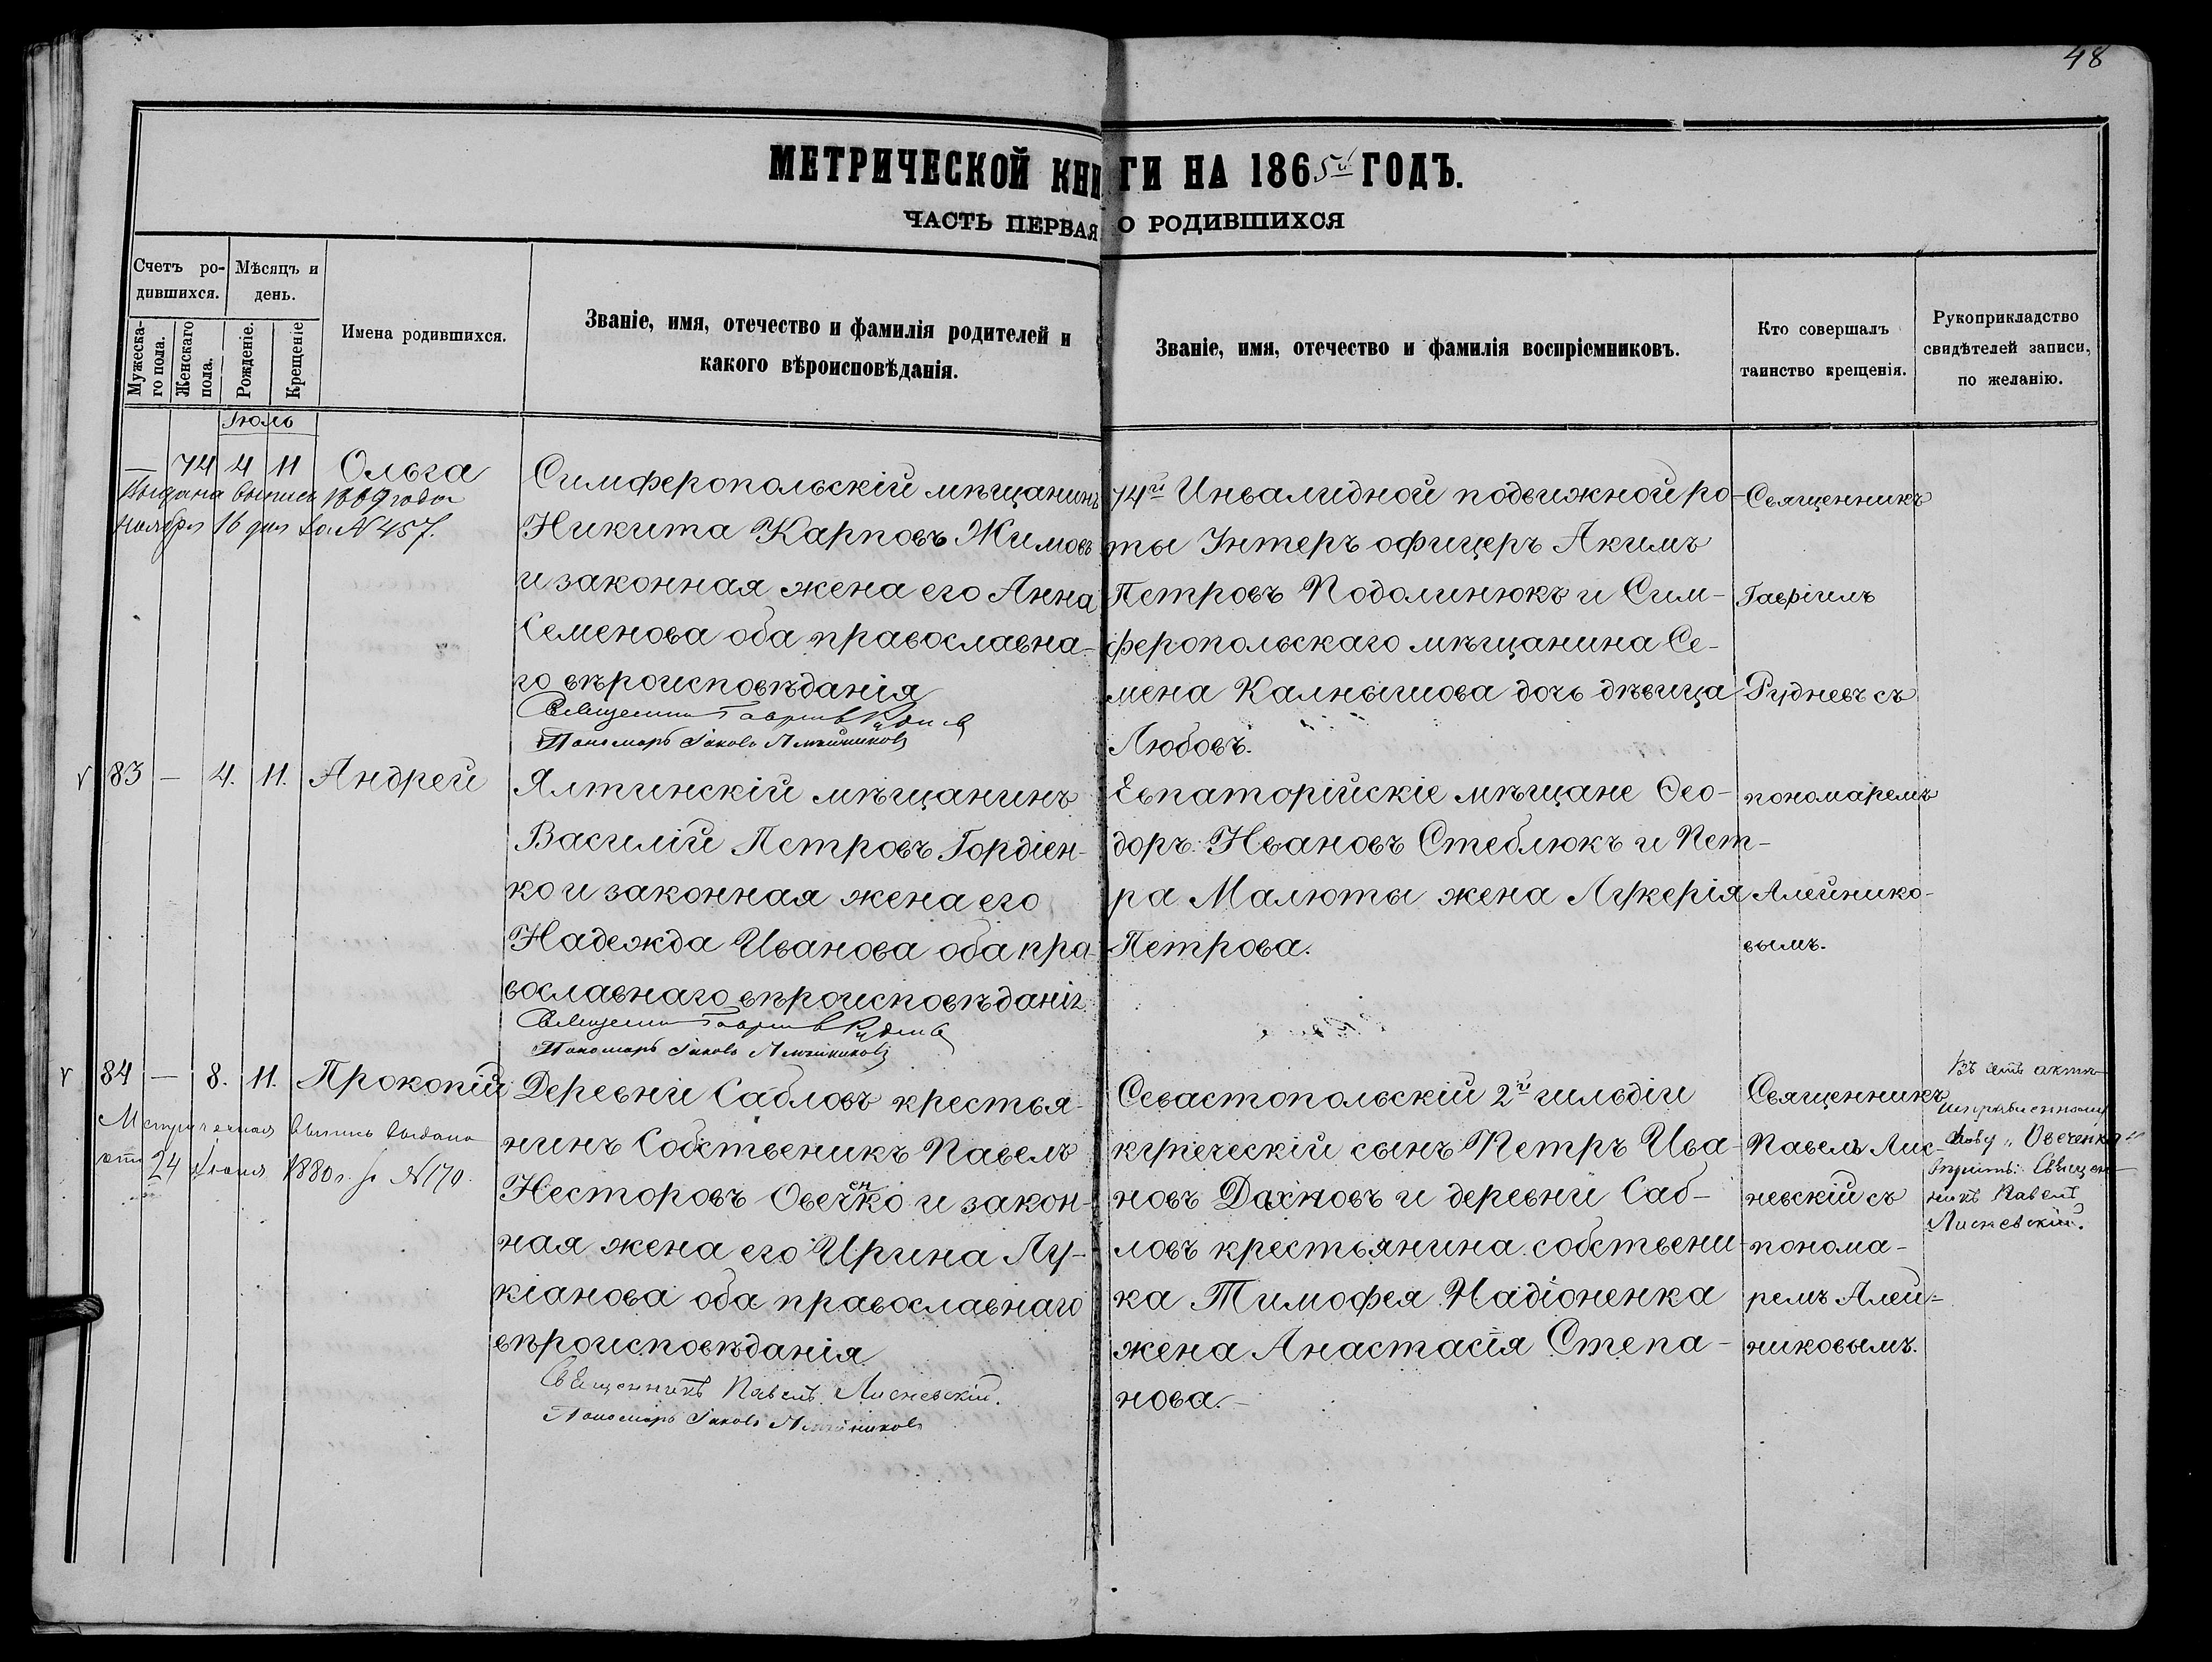 48
МЕТРИЧЕСКОЙ КНИГИ НА 1865й ГОДЪ.
ЧАСТЬ ПЕРВАЯ О РОДИВШИХСЯ
Счетъ ро-
дившихся.
Мѣсяцъ и
день.
Мужеска-
го пола.
Женскаго
пола.
Рожденіе.
Крещеніе
Имена родившихся.
Званіе, имя, отечество и фамилія родителей и
какого вѣроисповѣданія.
Званіе, имя, отечество и фамилія воспріемниковъ.
Кто совершалъ
таинство крещенія.
Рукоприкладство
свидѣтелей записи,
по желанію.
Іюль
— 74 4 11 Ольга
Выдана выпись 1889 года
ноября 16 дня за № 457.
Симферопольскій мѣщанинъ
Никита Карповъ Жимовъ
и законная жена его Анна
Семенова оба православна-
го вѣроисповѣданія
Священникъ Гавріилъ Рудневъ
Пономарь Іаковъ Алейниковъ
74й Инвалидной подвижной ро-
ты Унтеръ офицеръ Акимъ
Петровъ Подолинюкъ и Сим-
феропольскаго мѣщанина Се-
мена Калнышова дочь дѣвица
Любовь.
Священникъ
Гавріилъ
Рудневъ съ
пономаремъ
Алейнико-
вымъ.
83 — 4. 11. Андрей
Ялтинскій мѣщанинъ
Василій Петровъ Гордіен-
ко и законная жена его
Надежда Иванова оба пра-
вославнаго вѣроисповѣданія
Священникъ Гавріилъ Рудневъ
Пономарь Іаковъ Алейниковъ
Евпаторійскіе мѣщане Ѳео-
доръ Ивановъ Стеблюкъ и Пет-
ра Малюты жена Лукерія
Петрова.
84 — 8. 11. Прокопій
Метрическая выпись выдана
24 Іюня 1880 г. за № 170.
Деревни Сабловъ крестья-
нинъ Собственикъ Павелъ
Несторовъ Овеченко и закон-
ная жена его Ирина Лу-
кіанова оба православнаго
вѣроисповѣданія
Священникъ Павелъ Лисневскій.
Пономарь Іаковъ Алейниковъ
Севастопольскій 2й гильдіи
купеческій сынъ Петръ Ива-
новъ Дахновъ и деревни Саб-
ловъ крестьянина собствени-
ка Тимофея Надіоненка
жена Анастасія Степа-
нова.
Священникъ
Павелъ Лис-
невскій съ
понома-
ремъ Алей-
никовымъ.
Въ семъ актѣ
исправленному
слову „Овеченко"
вѣрить: Священ-
никъ Павелъ
Лисневскій.